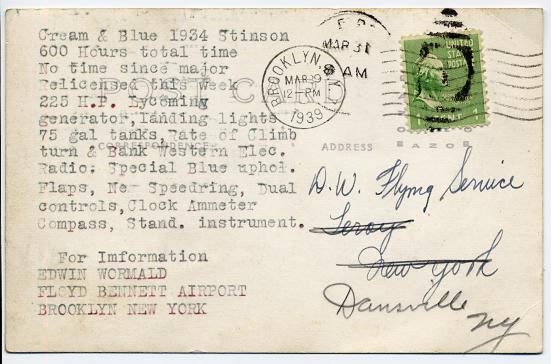 Cream & Blue 1934 Stinson
600 Hours total time
No time since major
Relicensed this week
225 H.P. Lycoming
generator,Landing lights
75 gal tanks,Rate of Climb
turn & Bank Western Elec.
Radio. Special Blue uphol.
Flaps, New Speedring, Dual
controls,Clock Ammeter
Compass, Stand. instrument.
For Imformation
EDWIN WORMALD
FLOYD BENNETT AIRPORT
BROOKLYN NEW YORK
POST CARD
CORRESPONDENCE
ADDRESS
BROOKLYN, N.Y.
MAR 9
12 PM
1939
MAR 31
AM
UNITED
STA
POST
1
D.W. Flying Service
Leroy
New York
Dansville
NY